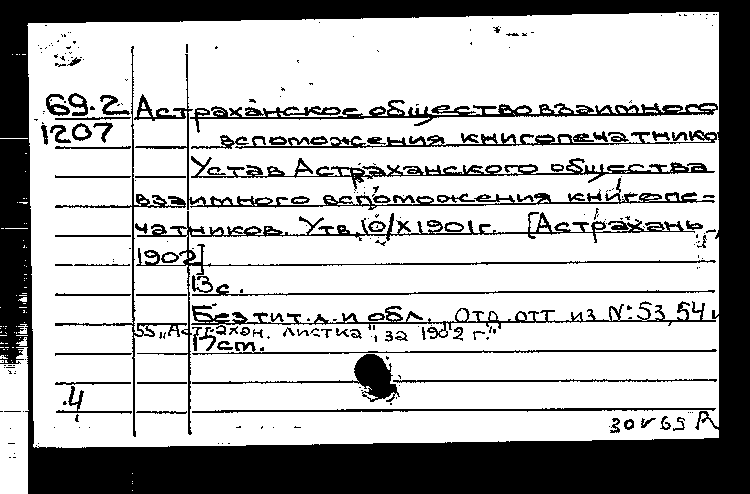 69.2 Астраханское общество взаимного
1207 вспоможения книгопечатнико
Устав Астраханского общества
взаимного вспоможения книгопе=
чатников. Утв. 10/X 1901 г. [Астрахань,
1902]
13 с.
Без тит. л. и обл. Отд. отт. из №: 53, 54 и
55 „Астрахан. листка", за 1902 г."
17 cm.
4
30 V 69